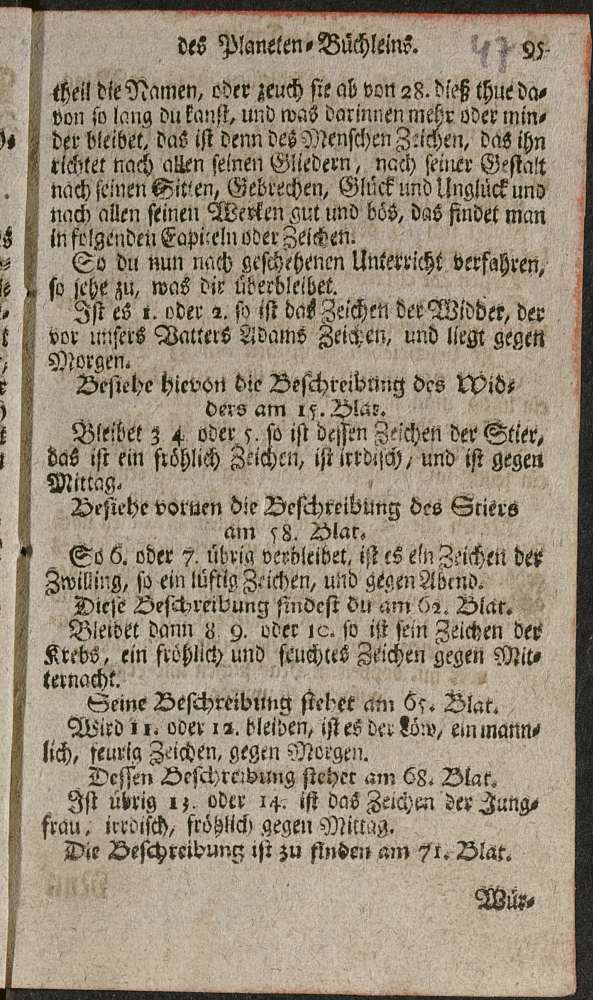 des Planeten-Büchleins. 47 95
theil die Namen, oder zeuch sie ab von 28. dieß thue da-
von so lang du kanst, und was darinnen mehr oder min-
der bleibet, das ist denn des Menschen Zeichen, das ihn
richtet nach allen seinen Gliedern, nach seiner Gestalt
nach seinen Sitten, Gebrechen, Glück und Unglück und
nach allen seinen Werken gut und bös, das findet man
in folgenden Capiteln oder Zeichen.
So du nun nach geschehenen Unterricht verfahren,
so sehe zu, was dir überbleibet.
Ist es 1. oder 2. so ist das Zeichen der Widder, der
vor unsers Vatters Adams Zeichen, und liegt gegen
Morgen.
Besiehe hievon die Beschreibung des Wid-
ders am 15. Blat.
Bleibet 3 4 oder 5. so ist dessen Zeichen der Stier,
das ist ein fröhlich Zeichen, ist irrdisch, und ist gegen
Mittag.
Besiehe vornen die Beschreibung des Stiers
am 58. Blat.
So 6. oder 7. übrig verbleibet, ist es ein Zeichen der
Zwilling, so ein lüftig Zeichen, und gegen Abend.
Diese Beschreibung findest du am 62. Blat.
Bleibet dann 8 9. oder 10. so ist sein Zeichen der
Krebs, ein fröhlich und feuchtes Zeichen gegen Mit-
ternacht.
Seine Beschreibung stehet am 65. Blat.
Wird 11. oder 12. bleiben, ist es der Löw, ein mann-
lich, feurig Zeichen, gegen Morgen.
Dessen Beschreibung stehet am 68. Blat.
Ist übrig 13. oder 14. ist das Zeichen der Jung-
frau, irrdisch, fröhlich gegen Mittag.
Die Beschreibung ist zu finden am 71. Blat.
Wür-